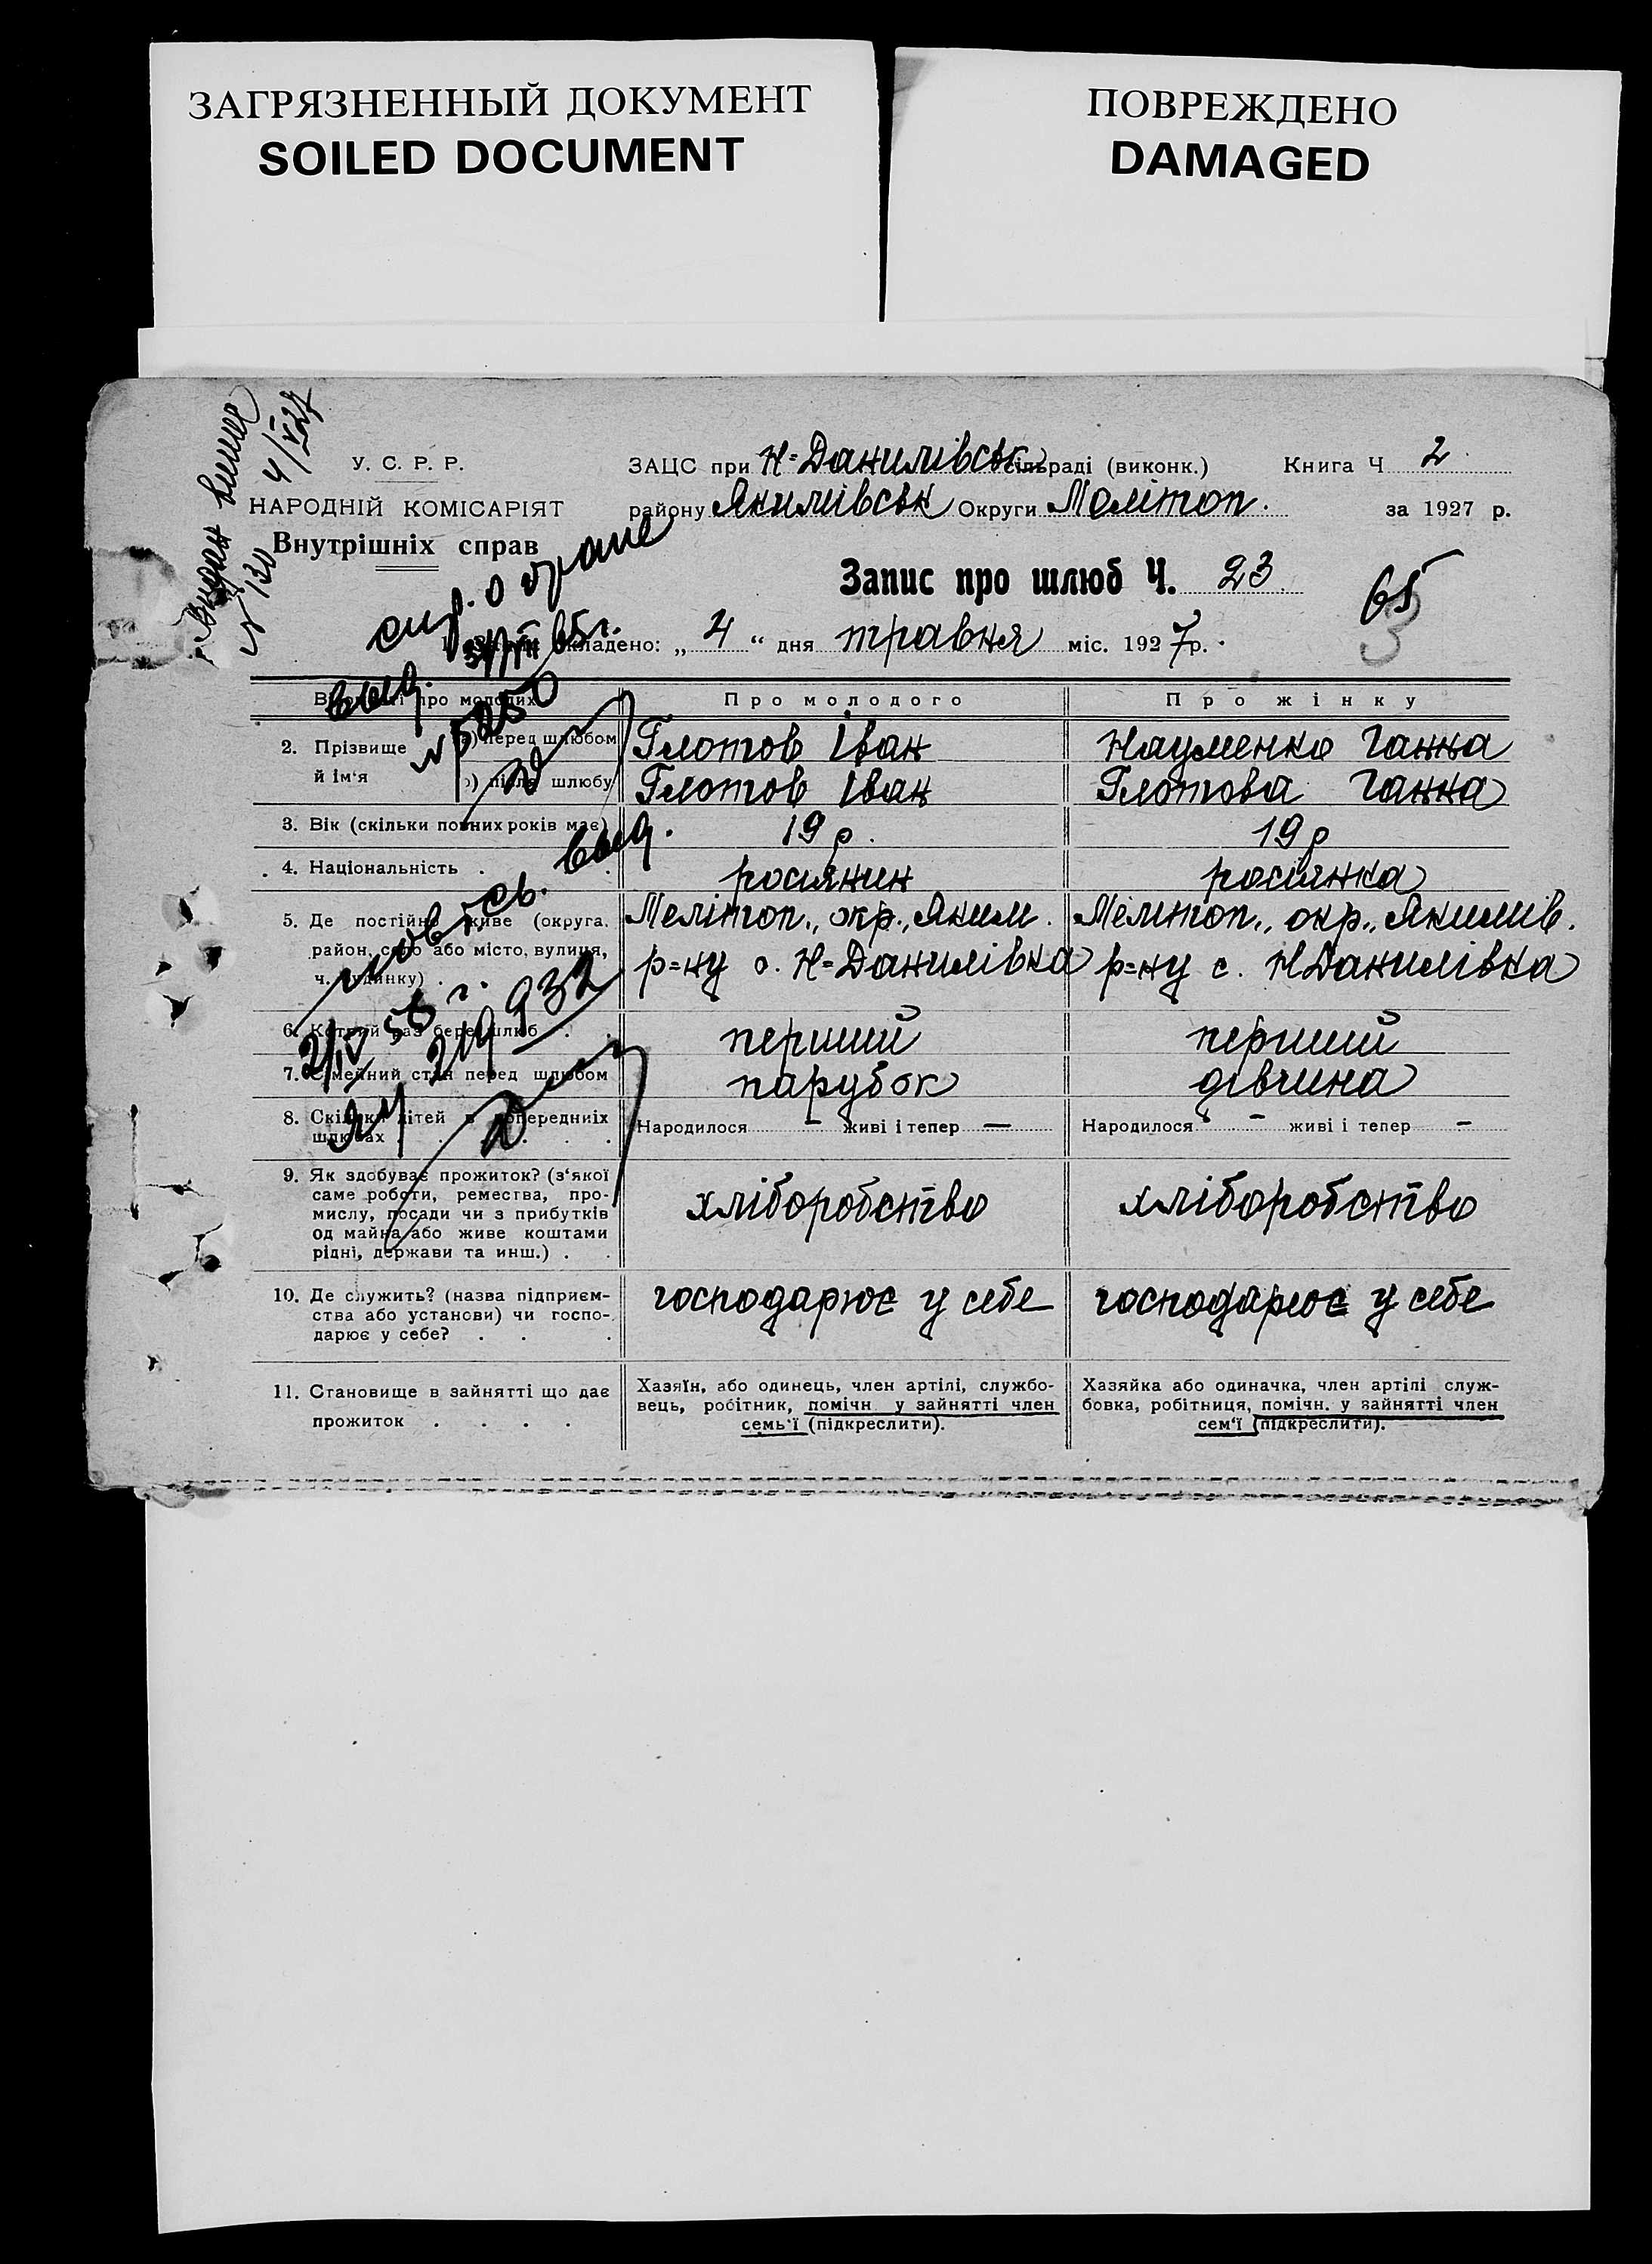 ЗАГРЯЗНЕННЫЙ ДОКУМЕНТ
SOILED DOCUMENT
ПОВРЕЖДЕНО
DAMAGED
Видан
№ 130 4/V 27
У. С. Р. Р.
НАРОДНІЙ КОМІСАРІЯТ
Внутрішніх справ
ЗАЦС при Н-Данилівськ сільраді (виконк.) Книга Ч 2
району Якимівськ Округи Мелітоп. за 1927 р.
Запис про шлюб Ч. 23
65
3
складено: „ 4 “ дня травня міс. 1927р.
спр. о браке
выд.
№
Про молодого
Про жінку
2. Прізвище й ім'я
перед шлюбом Глотов Іван Науменко Ганна
після шлюбу Глотов Іван Глотова Ганна
3. Вік (скільки повних років має) 19 р. 19 р
4. Національність . росіянин росіянка
5. Де постійно живе (округа, Мелітоп., окр., Яким. Мелітоп., окр., Якимів.
район, село або місто, вулиця, р-ну с. Н-Данилівка р-ну с. Н Данилівка
ч. будинку) .
повт. св. выд.
6. Котрий раз бере шлюб . перший перший
7. Семейний стан перед шлюбом парубок дівчина
8. Скільки дітей в попередніх Народилося – живі і тепер — Народилося – живі і тепер –
шлюбах . . . .
9. Як здобуває прожиток? (з'якої
саме роботи, ремества, про-
мислу, посади чи з прибутків хліборобство хліборобство
од майна або живе коштами
рідні, держави та инш.) . .
10. Де служить? (назва підприєм- господарює у себе господарює у себе
ства або установи) чи госпо-
дарює у себе? . . .
11. Становище в зайнятті що дає
прожиток . . . .
Хазяїн, або одинець, член артілі, службо-
вець, робітник, помічн у зайнятті член
семь'ї (підкреслити).
Хазяйка або одиначка, член артілі служ-
бовка, робітниця, помічн. у зайнятті член
сем'ї (підкреслити).